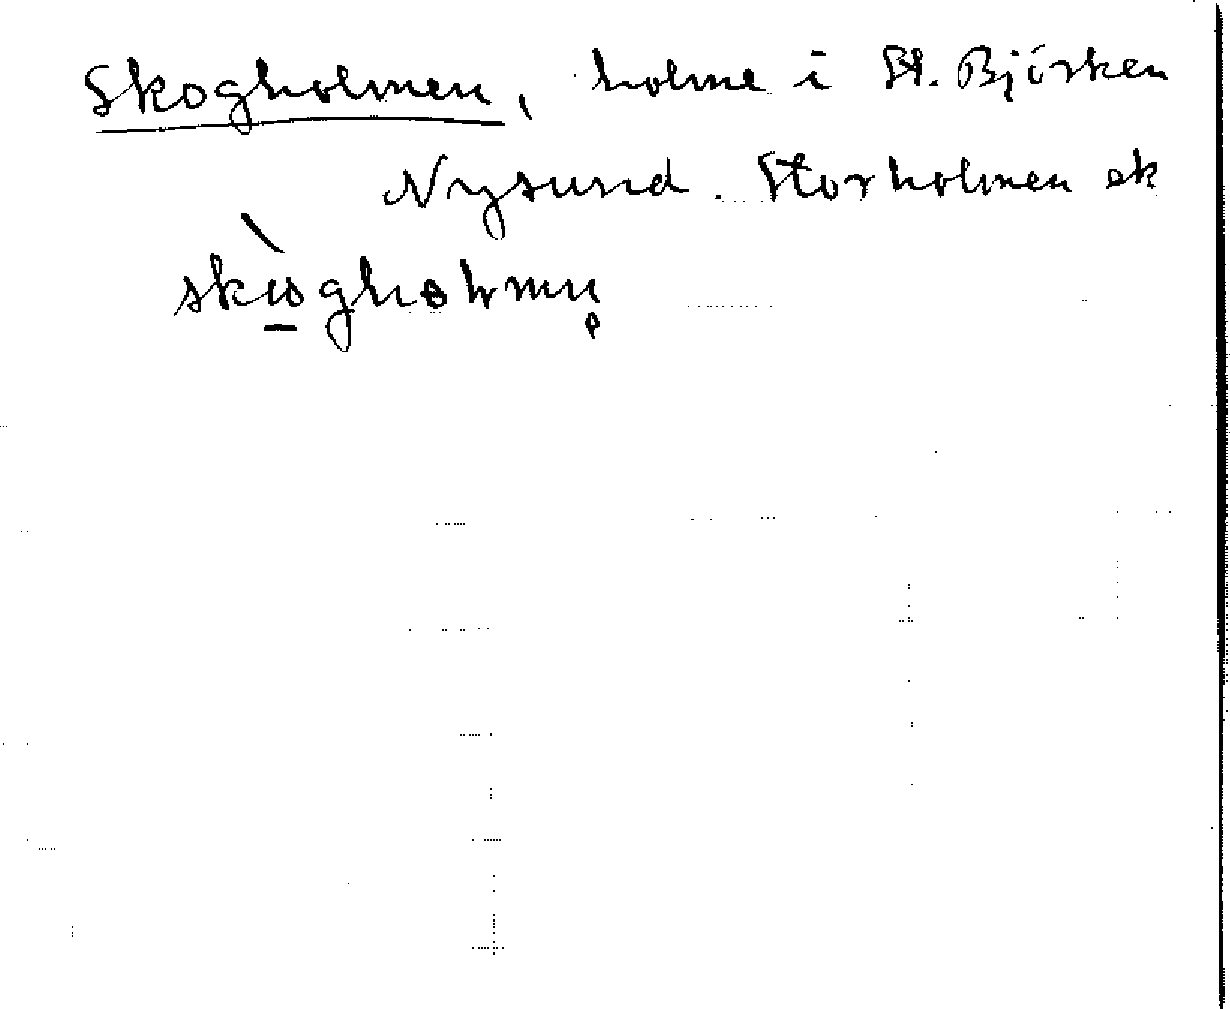 Skogholmen, holme i St. Björken
Nysund. Storholmen ek